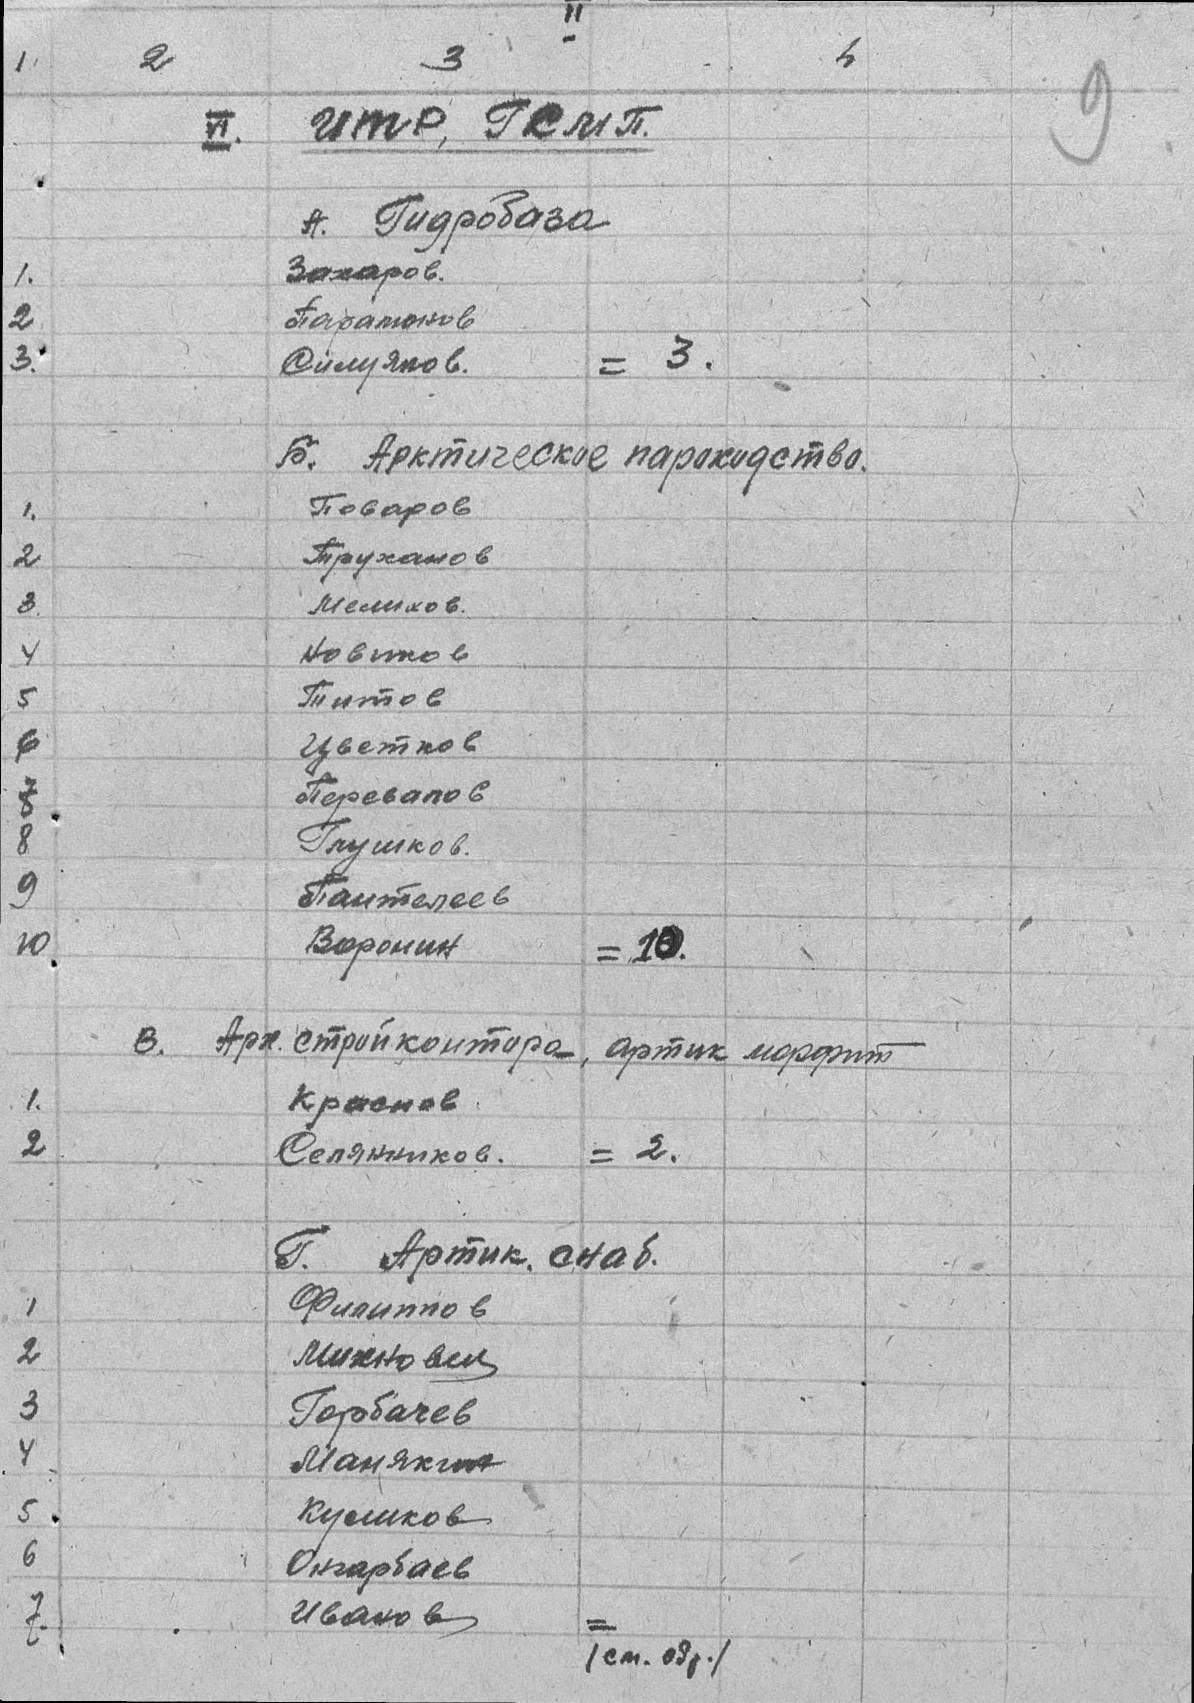 II
1. 2 3 4
9
VI. ИТР, ГСМП.
А. Гидробаза
1. Захаров.
2 Парамонов
3. Силуянов. = 3.
Б. Арктическое пароходство.
1. Поваров
2 Труханов
3. Мелихов.
4 Новиков
5 Титов
6 Цветков
7 Перевалов
8 Глушков.
9 Пантелеев
10 Воронин = 10.
В. Арх. стройконтора, артик
1. Краснов
2 Селянников. = 2.
Г. Артик. снаб.
1 Филиппов
2 Михновец
3 Горбачев
4 Манякин
5 Куликов
6 Онгарбаев
7. Иванов =
/см. обр./